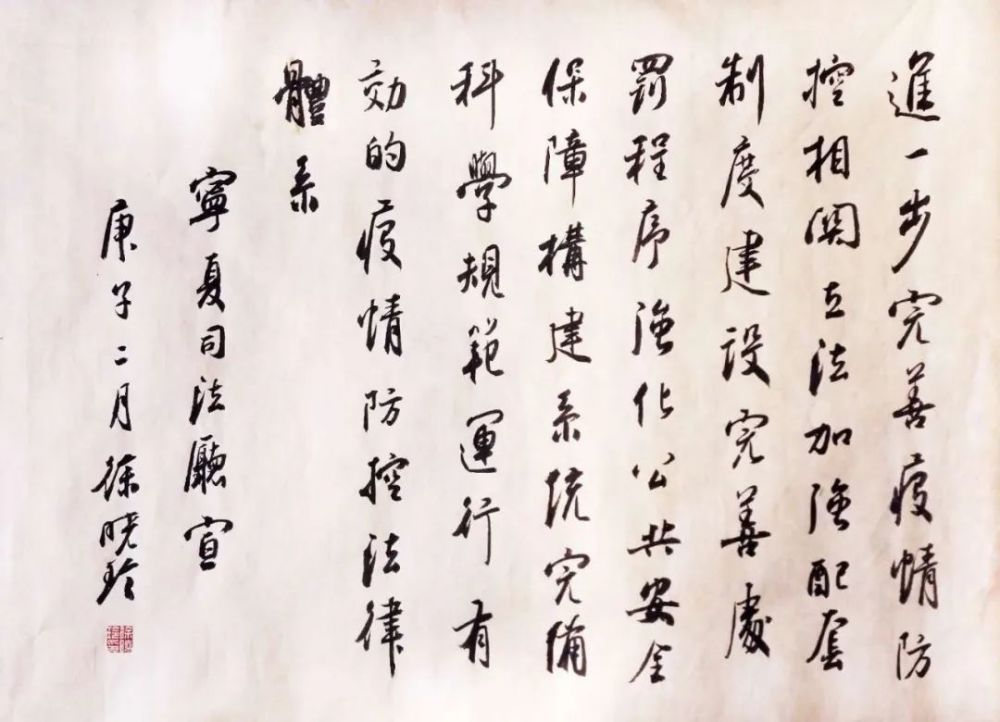 進一步完善疫情防
控相関立法加強配套
制度建設完善處
罰程序強化公共安全
保障構建系統完備
科學規範運行有
効的疫情防控法律
體系
寧夏司法廳宣
庚子二月徐曉玲